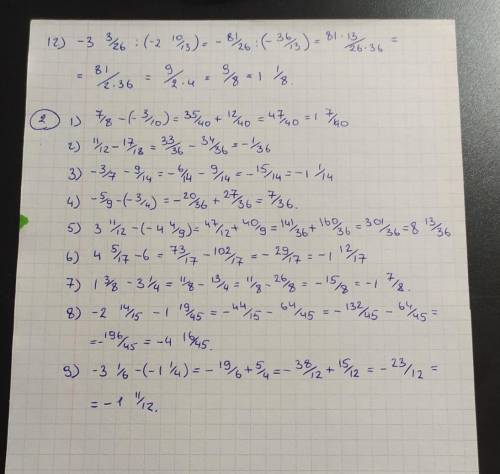 12) -3 3/26 : (-2 10/13) = -81/26 : (-36/13) = 81·13/26·36 =
= 81/2·36 = 9/2·4 = 9/8 = 1 1/8.
2 1) 7/8 - (-3/10) = 35/40 + 12/40 = 47/40 = 1 7/40
2) 11/12 - 17/18 = 33/36 - 34/36 = -1/36
3) -3/7 - 9/14 = -6/14 - 9/14 = -15/14 = -1 1/14
4) -5/9 - (-3/4) = -20/36 + 27/36 = 7/36.
5) 3 11/12 - (-4 4/9) = 47/12 + 40/9 = 141/36 + 160/36 = 301/36 = 8 13/36
6) 4 5/17 - 6 = 73/17 - 102/17 = -29/17 = -1 12/17
7) 1 3/8 - 3 1/4 = 11/8 - 13/4 = 11/8 - 26/8 = -15/8 = -1 7/8.
8) -2 14/15 - 1 19/45 = -44/15 - 64/45 = -132/45 - 64/45 =
= -196/45 = -4 16/45.
9) -3 1/6 - (-1 1/4) = -19/6 + 5/4 = -38/12 + 15/12 = -23/12 =
= -1 11/12.